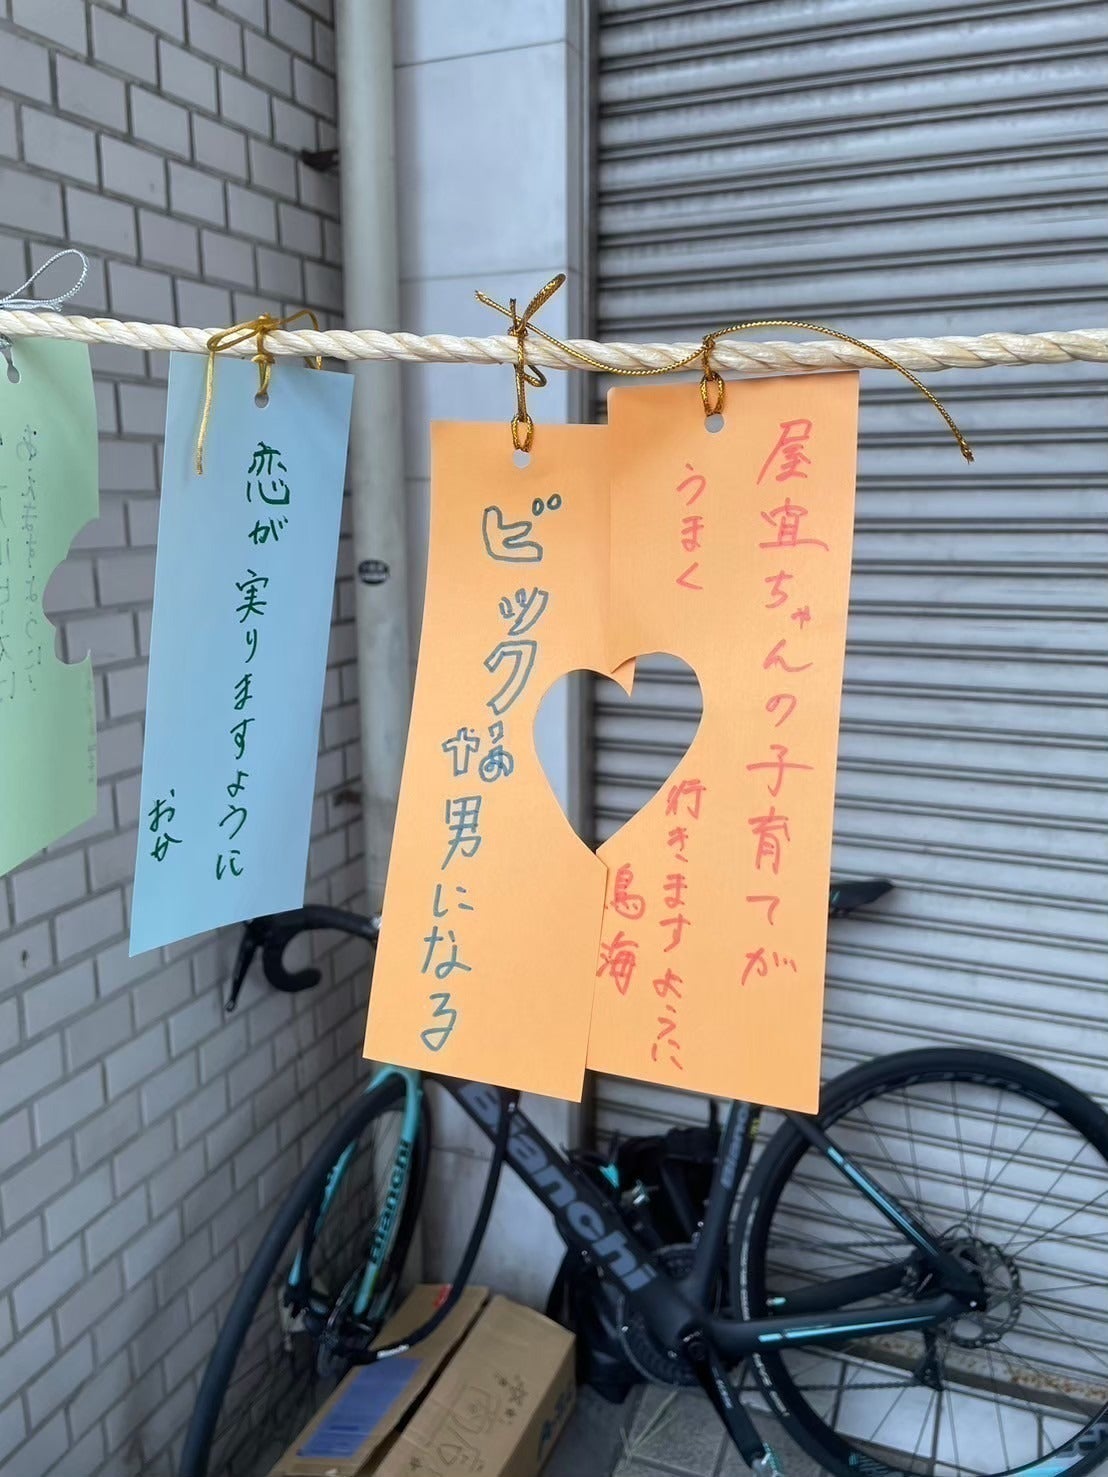 屋宜ちゃんの子育てが
うまく行きますように
鳥海
ビックな男になる
恋が実りますように
おか
Bianchi
Bianchi